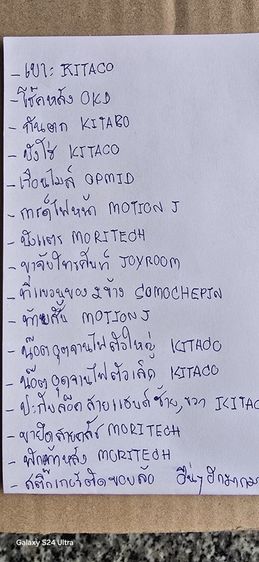 - เบาะ KITACO
- โช๊คหลัง OKD
- กันตก KITACO
- บังโซ่ KITACO
- เรือนไมล์ OPMID
- การ์ดไฟหน้า MOTION J
- บังแตร MORITECH
- ขาจับโทรศัพท์ JOYROOM
- ที่แขวนของ 2 ข้าง COMOCHEPIN
- ท้ายสั้น MOTION J
- น๊อตอุดจานไฟตัวใหญ่ KITACO
- น๊อตอุดจานไฟตัวเล็ก KITACO
- ปะกับล็อคสายแฮนด์ซ้าย, ขวา KITACO
- ขายึดสายคลัช MORITECH
- พักเท้าหลัง MORITECH
- สติ๊กเกอร์ติดขอบล้อ อื่นๆ อีกมากมาย
Galaxy S24 Ultra